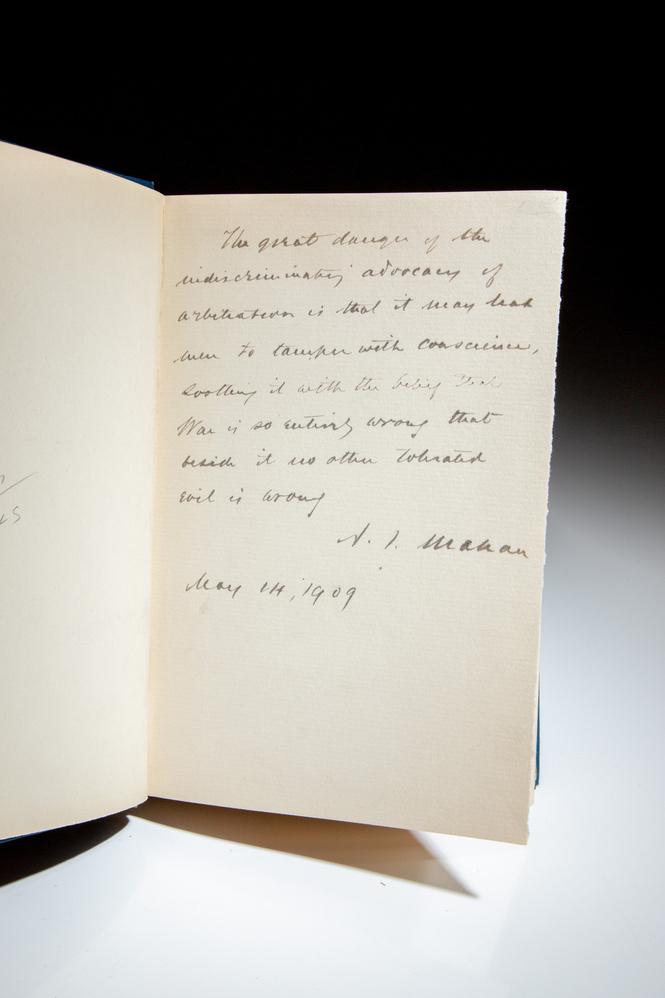 The great danger of the
indiscriminating advocacy of
arbitration is that it may lead
men to tamper with conscience,
soothing it with the belief that
War is so entirely wrong that
beside it no other tolerated
evil is wrong
A. T. Mahan
May 14, 1909